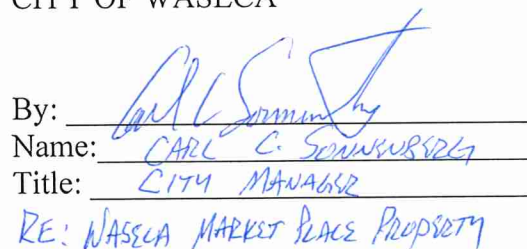 CITY OF WASECA
By: Carl C Sonnenberg
Name: CARL C. SONNENBERG
Title: CITY MANAGER
RE: WASECA MARKET PLACE PROPERTY